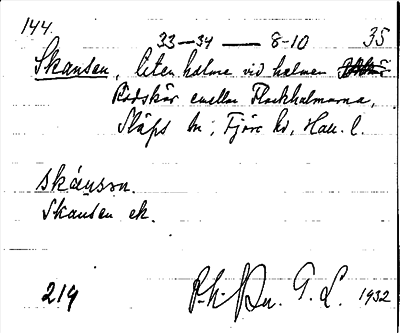 144.
33—34 — 8-10 35
Skansen, liten holme vid holmen
Rödskär emellan Flockholmarna,
Släps sn; Fjäre hd, Hall. l.
skánsən.
Skansen ek.
219 G. L. 1932